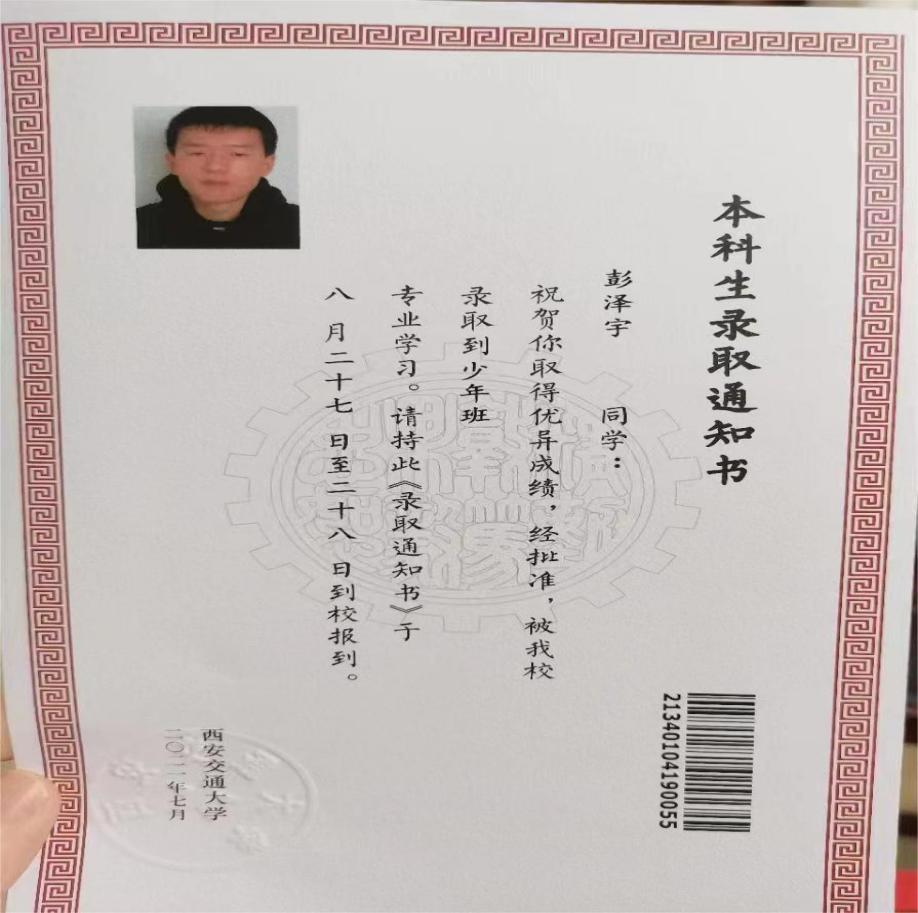 本科生录取通知书
彭泽宇 同学：
祝贺你取得优异成绩，经批准，被我校
录取到少年班
专业学习。请持此《录取通知书》于
八 月二十七 日至二十八 日到校报到。
西安交通大学
二〇二一年七月
21340104190055